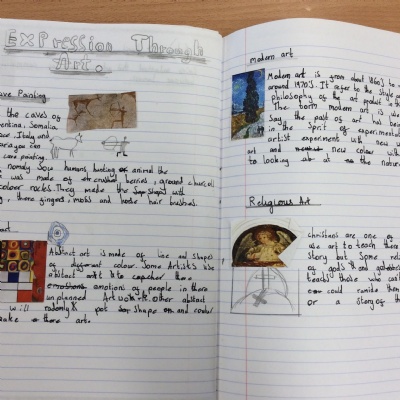 Expression Through
Art.
ave Painting
the caves of
entina. Somalia
ce. Italy and
aria you can
cave painting
normaly Saw humans hunting or animal the
was made of crushed berries, ground charcoal
colour rocks. They made the shapes with
, there gingers, moss and horse hair brushes.
art
Abstract art is made of line and shapes
of different colour. Some Artist's use
abstract art to capcher there
emotions emotions of people in there
unplanned Art work. other abstract
will radomly put shape and colour
make there art.
modern art
Modern art is from about 1860's to
around 1970's. It refer to the style
philosophy of the art produce
The term modern art is use
Say the past of art has bein
in the spirit of experimentat
artist experiment with new
art and new colour with
to looking at the natur
Religious Art
christians are one of
use art to teach there
story but Some reli
of gods &
teach those who can
could remide them
or a story of th